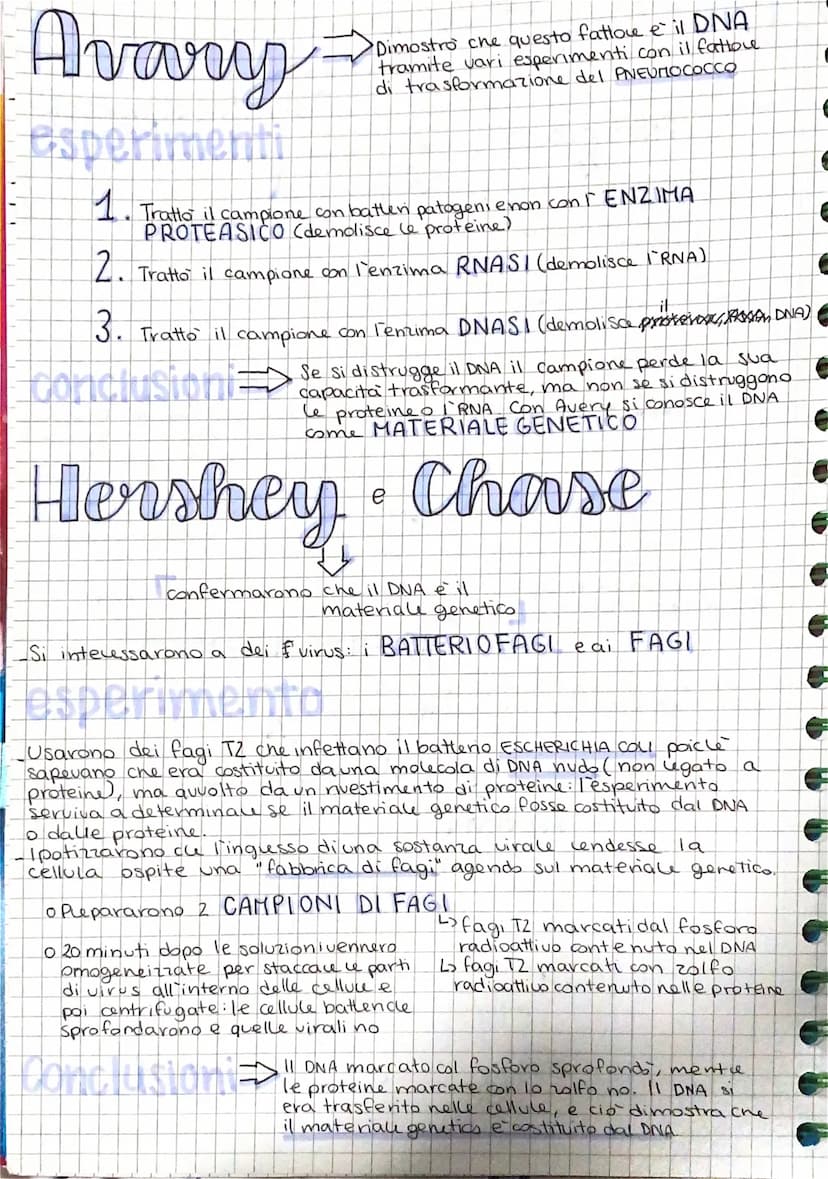 Avary
Dimostrò che questo fattore è il DNA
tramite vari esperimenti con il fattore
di trasformazione del PNEUMOCOCCO
esperimenti
1. Trattò il campione con batteri patogeni e non con l'ENZIMA
PROTEASICO (demolisce le proteine)
2. Trattò il campione con l'enzima RNASI (demolisce l'RNA)
3. Trattò il campione con l'enzima DNASI (demolisce il DNA)
conclusioni
Se si distrugge il DNA il campione perde la sua
capacità trasformante, ma non se si distruggono
le proteine o l'RNA. Con Avery si conosce il DNA
come MATERIALE GENETICO
Hershey e Chase
Confermarono che il DNA è il
materiale genetico
-Si interessarono a dei virus: i BATTERIOFAGI e ai FAGI
esperimento
-Usarono dei fagi T2 che infettano il batterio ESCHERICHIA COLI poichè
sapevano che era costituito da una molecola di DNA nudo (non legato a
proteine), ma avvolto da un rivestimento di proteine: l'esperimento
serviva a determinare se il materiale genetico fosse costituito dal DNA
o dalle proteine.
-Ipotizzarono che l'ingresso di una sostanza virale rendesse la
cellula ospite una "fabbrica di fagi" agendo sul materiale genetico.
o Prepararono 2 CAMPIONI DI FAGI
↳ fagi T2 marcati dal fosforo
radioattivo contenuto nel DNA
↳ fagi T2 marcati con zolfo
radioattivo contenuto nelle proteine
o 20 minuti dopo le soluzioni vennero
omogeneizzate per staccare le parti
di virus all'interno delle cellule e
poi centrifugate: le cellule batteriche
sprofondarono e quelle virali no
Conclusioni
Il DNA marcato col fosforo sprofondò, mentre
le proteine marcate con lo zolfo no. Il DNA si
era trasferito nelle cellule, e ciò dimostra che
il materiale genetico è costituito dal DNA